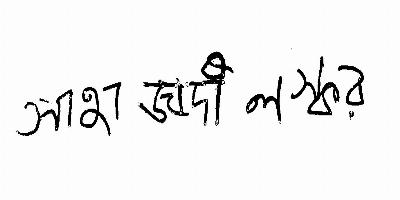 সাহা জাদী লস্কর